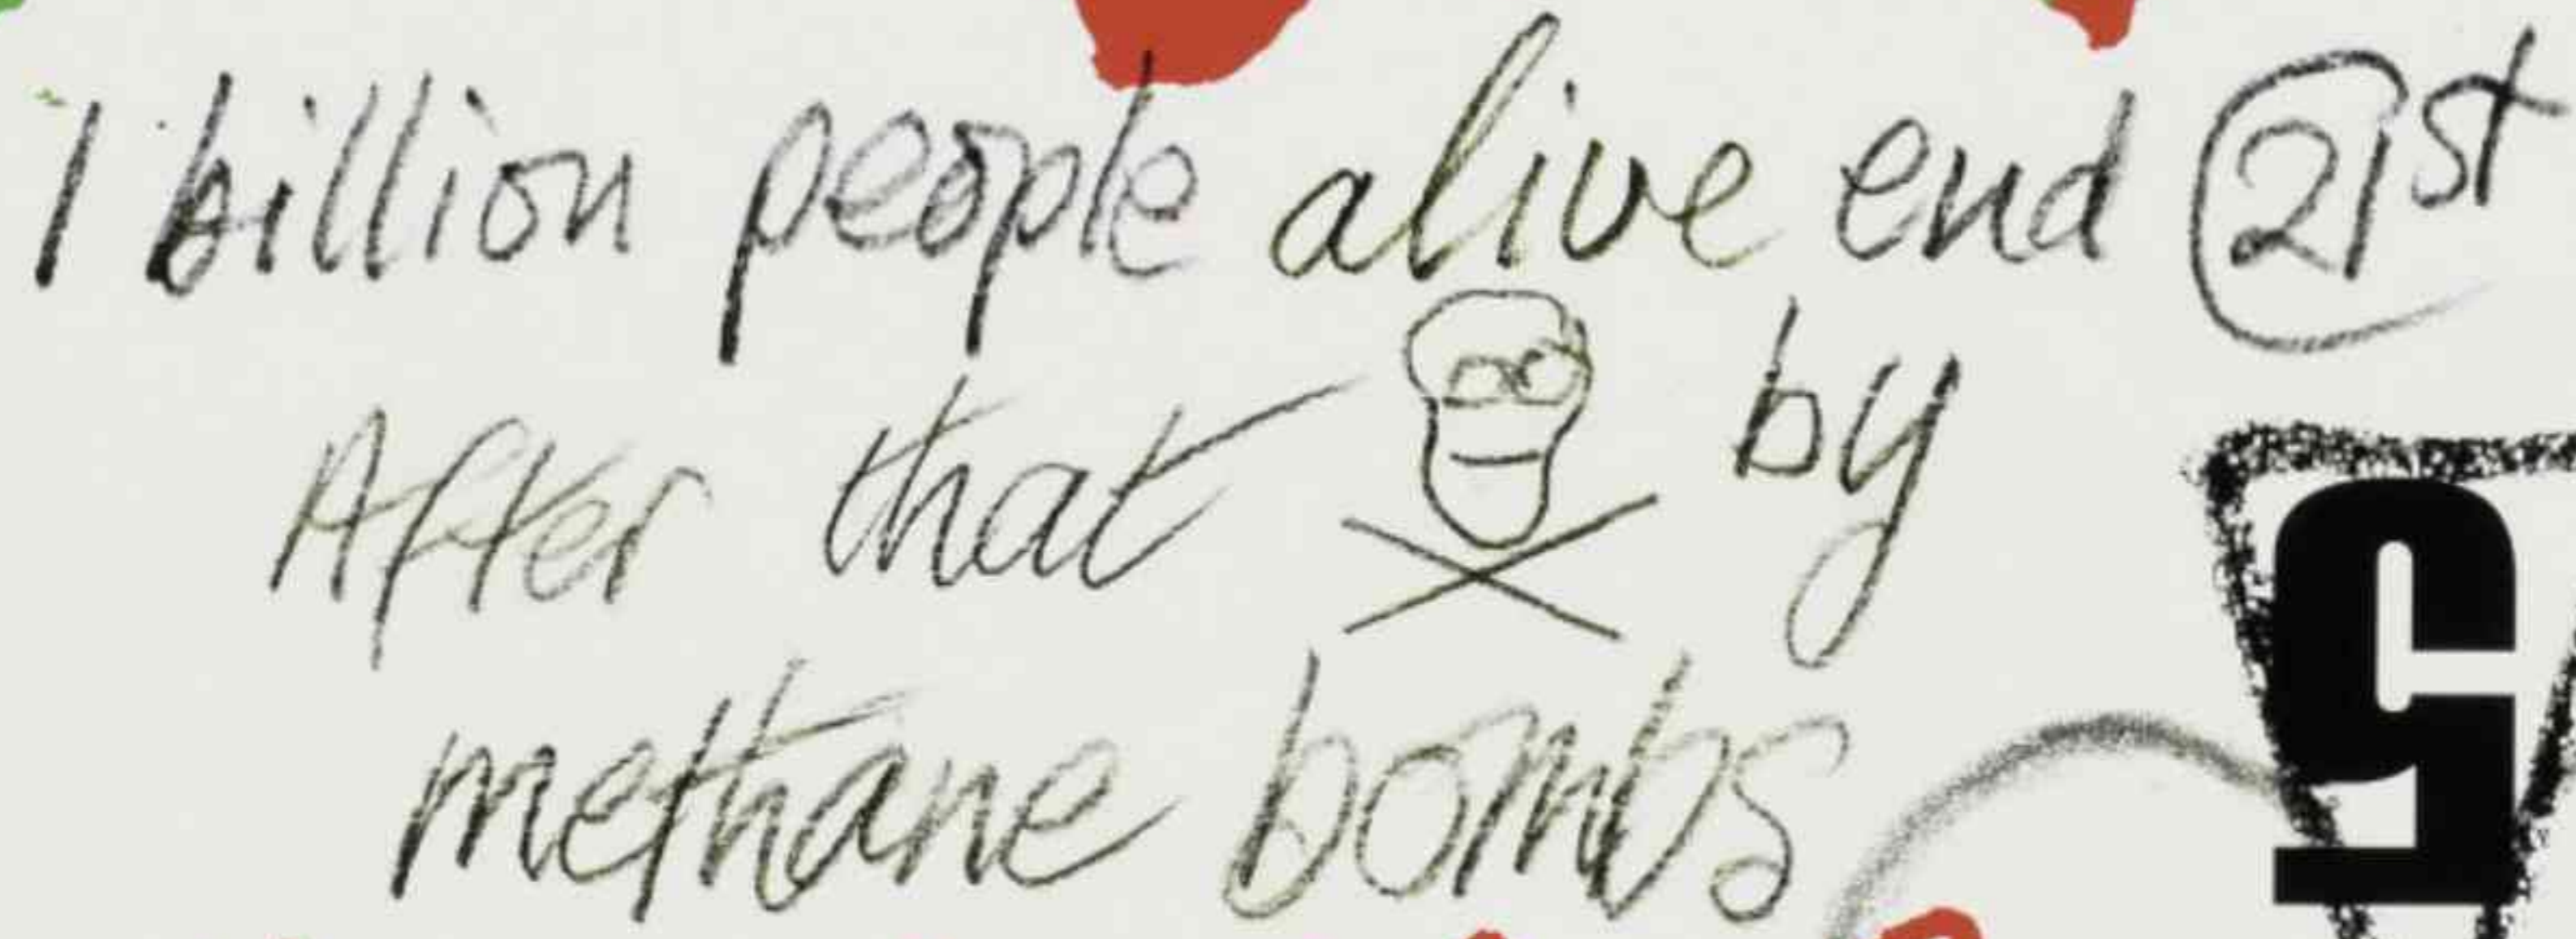 1 billion people alive end 21st
After that by
methane bombs
5